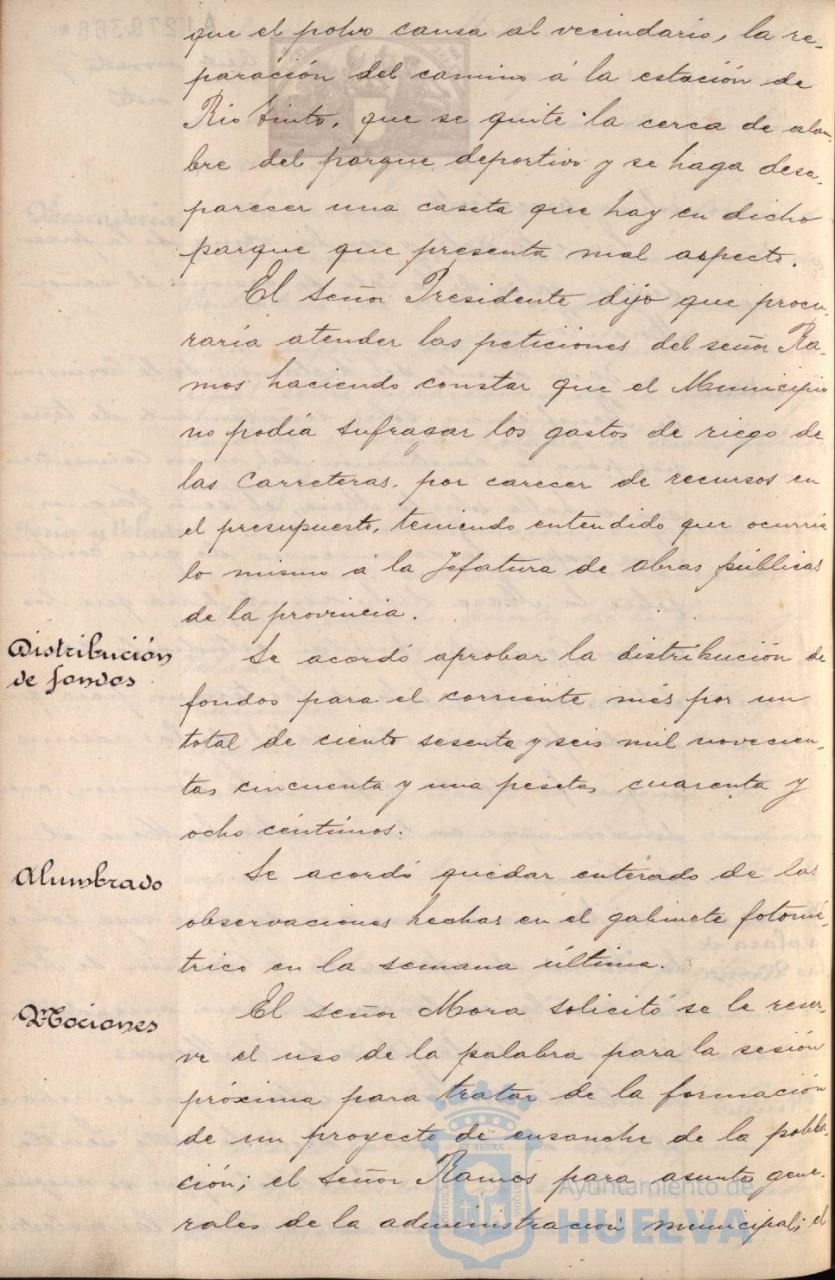 que el polvo causa al vecindario, la re-
paración del camino á la estación de
Rio tinto, que se quite la cerca de alam-
bre del parque deportivo y se haga desa-
parecer una caseta que hay en dicho
parque que presenta mal aspecto.
El señor Presidente dijo que procu-
raría atender las peticiones del señor Ra-
mos haciendo constar que el Municipio
no podía sufragar los gastos de riego de
las Carreteras, por carecer de recursos en
el presupuesto, teniendo entendido que ocurría
lo mismo á la Jefatura de Obras públicas
de la provincia.
Distribución
de fondos
Se acordó aprobar la distribución de
fondos para el corriente més por un
total de ciento sesenta y seis mil novecien-
tas cincuenta y una pesetas cuarenta y
ocho céntimos.
Alumbrado
Se acordó quedar enterado de las
observaciones hechas en el gabinete fotomé-
trico en la semana última.
Mociones
El señor Mora solicitó se le reser-
ve el uso de la palabra para la sesión
próxima para tratar de la formación
de un proyecto de ensanche de la pobla-
ción; el señor Ramos para asunto gene-
rales de la administración municipal; el
Ayuntamiento de
HUELVA